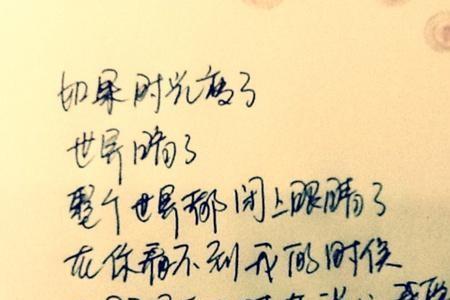 如果时光廋了
世界暗了
整个世界都闭上眼睛了
在你看不到我的时候